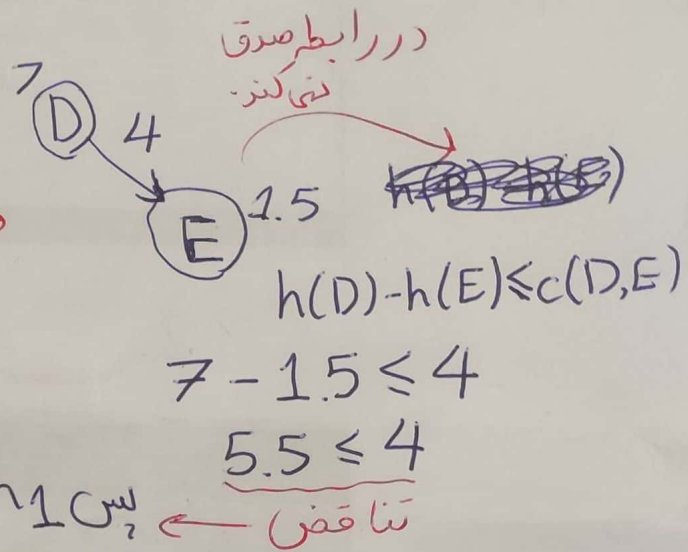 در رابطه صدق
نمی‌کند.
7
D
4
E
1.5
h(D)-h(E)≤c(D,E)
7-1.5≤4
5.5≤4
تناقض ← پس 1